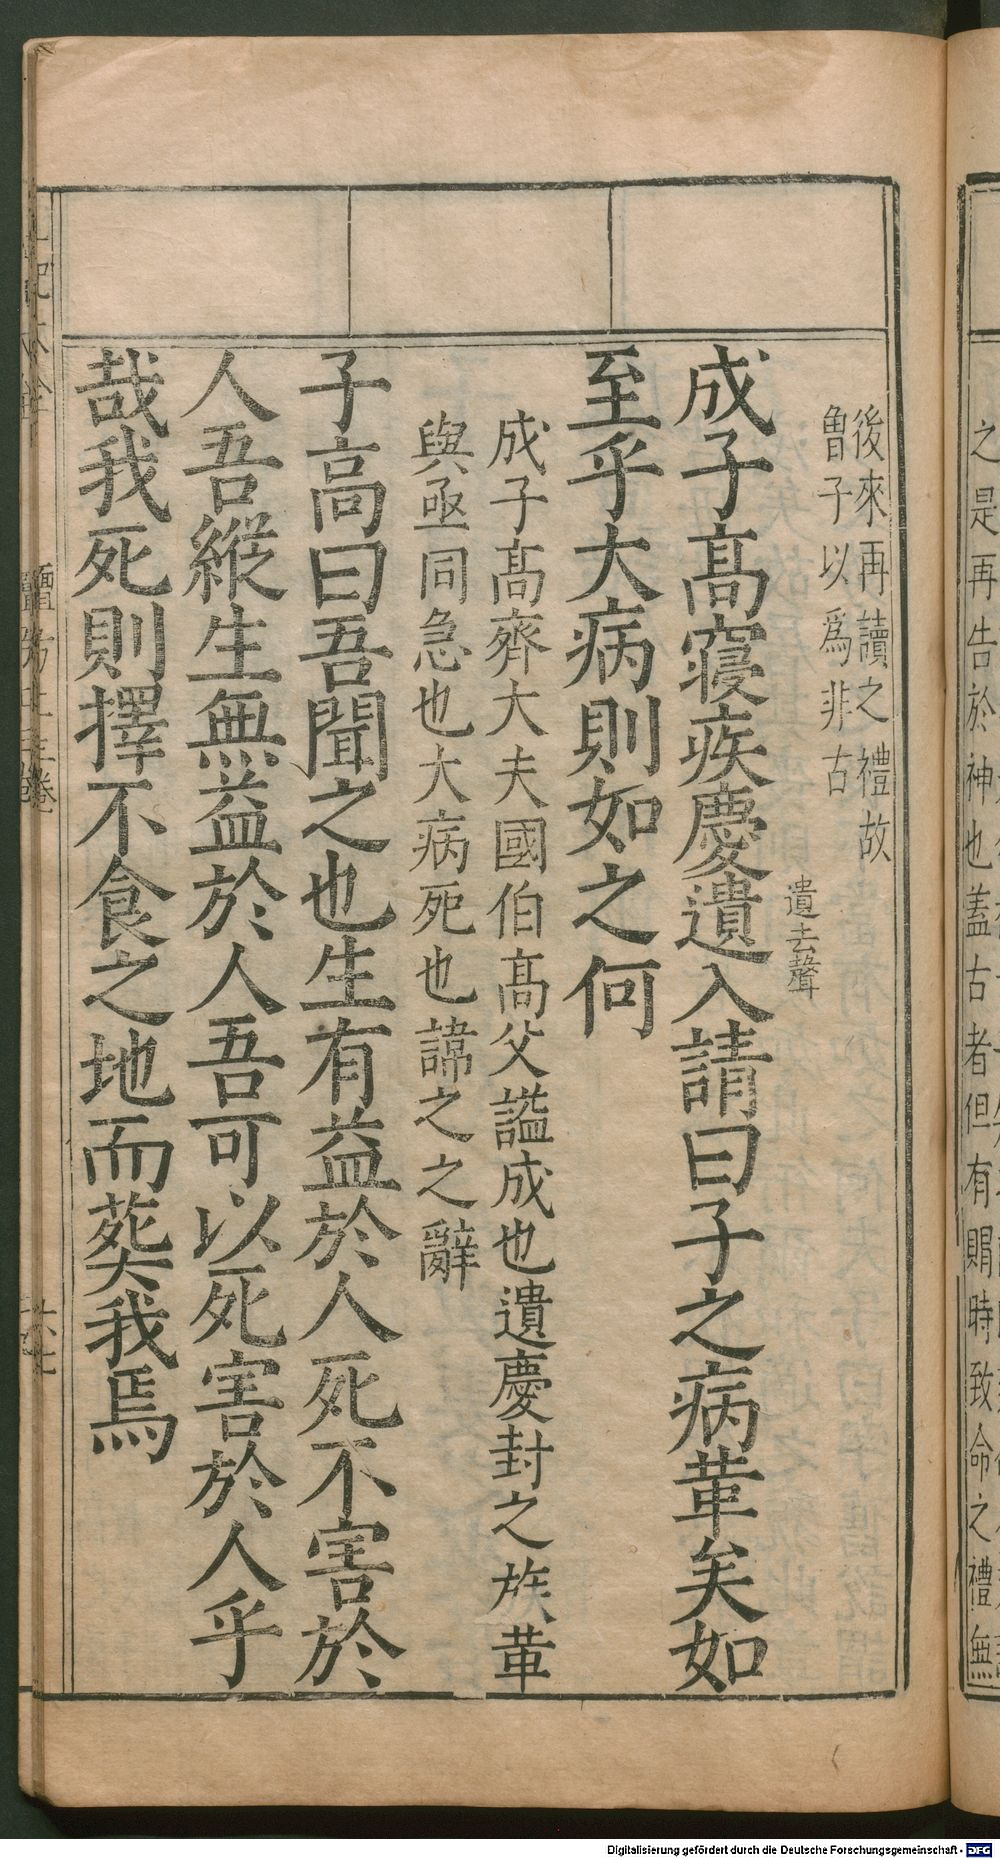 後來再讀之禮故
魯子以爲非古
遺去聲
成子高寢疾慶遺入請曰子之病革矣如
至乎大病則如之何
成子高齊大夫國伯高父謚成也遺慶封之族革
與亟同急也大病死也諱之之辭
子高曰吾聞之也生有益於人死不害於
人吾縱生無益於人吾可以死害於人乎
哉我死則擇不食之地而葬我焉
之是再告於神也蓋古者但有賵時致命之禮無
Digitalisierung gefördert durch die Deutsche Forschungsgemeinschaft - DFG